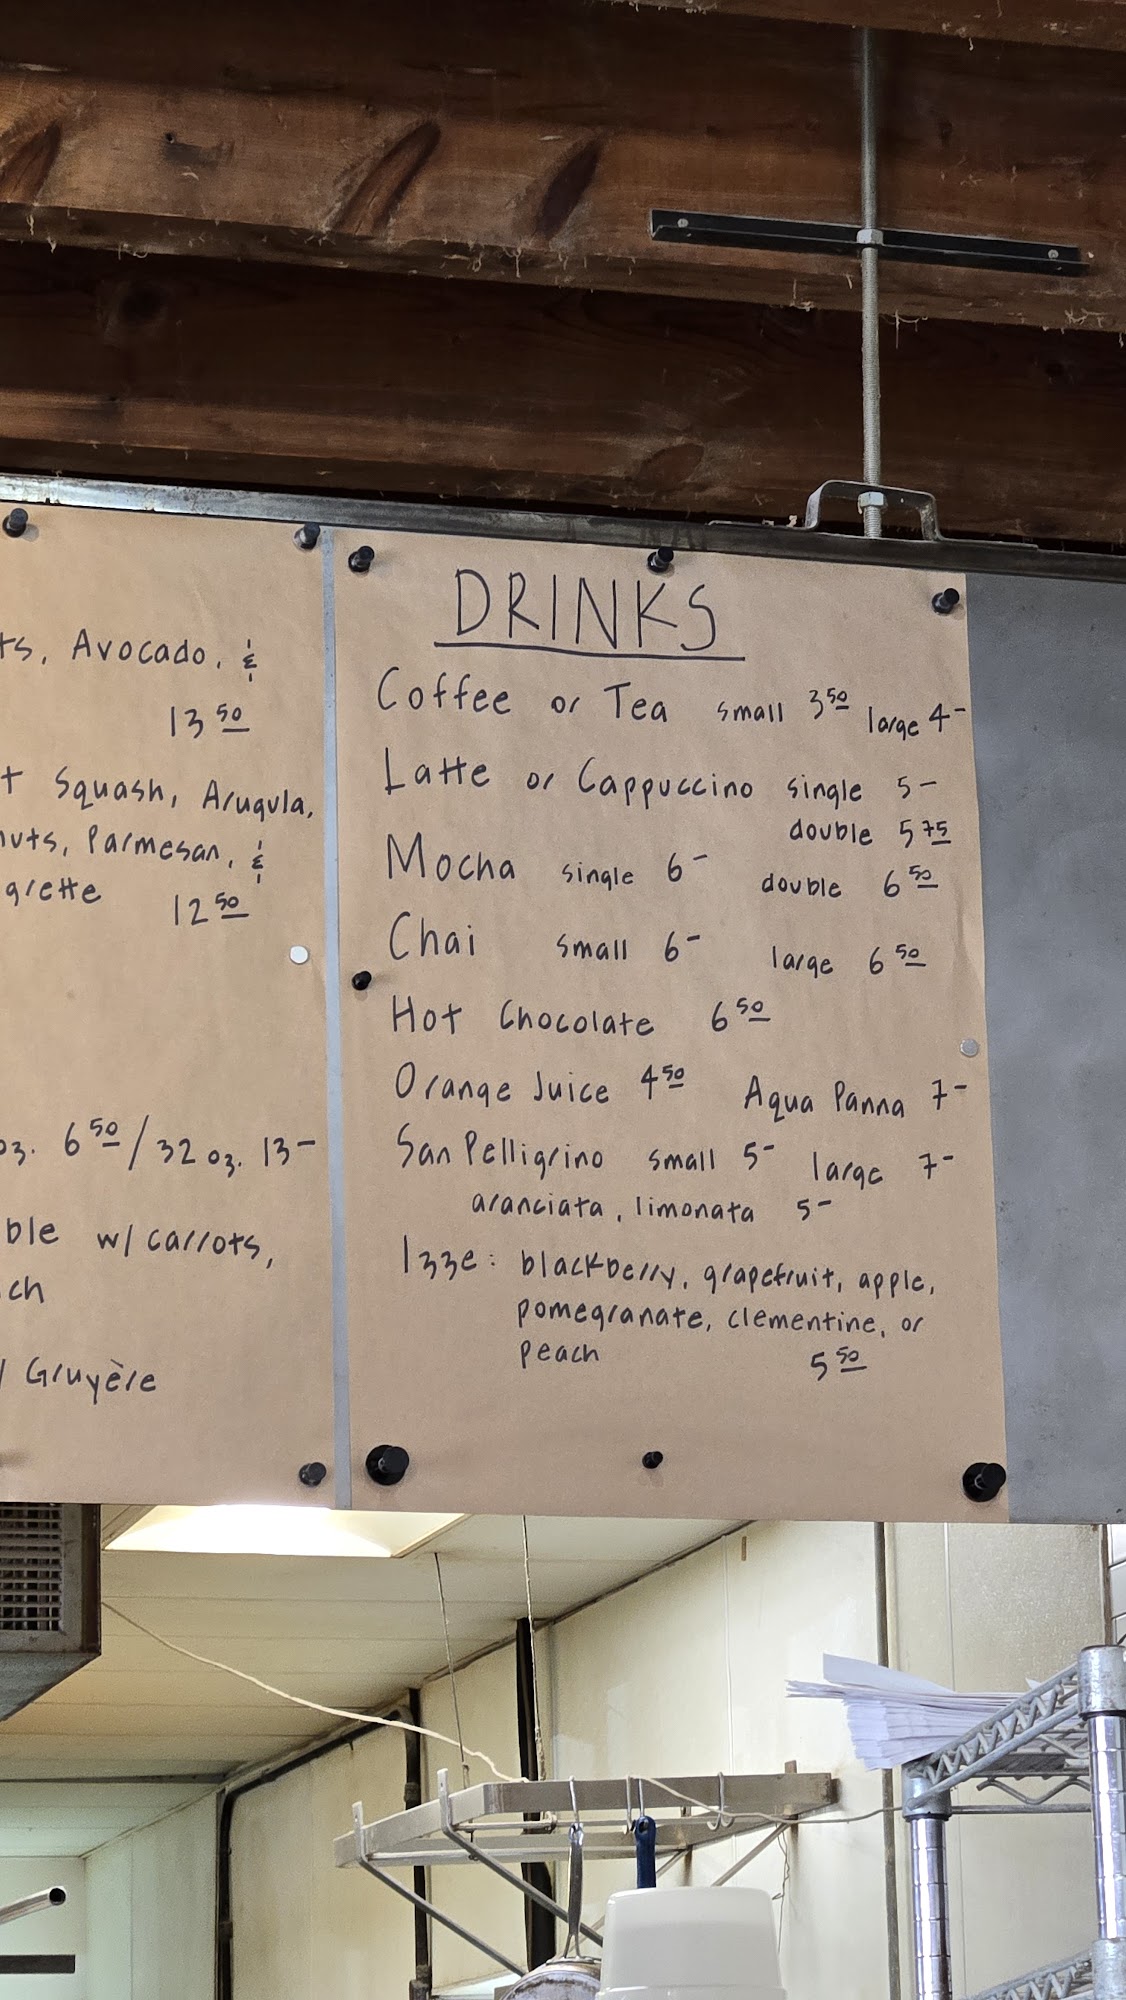 Avocado, &
13 50
Squash, Arugula,
Parmesan, &
12 50
6 50 / 32 oz. 13-
w/ carrots,
Gruyère
DRINKS
Coffee or Tea small 3 50 large 4-
Latte or Cappuccino single 5-
double 5 75
Mocha single 6- double 6 50
Chai small 6- large 6 50
Hot Chocolate 6 50
Orange Juice 4 50 Aqua Panna 7-
San Pelligrino small 5- large 7-
aranciata, limonata 5-
Izze: blackberry, grapefruit, apple,
pomegranate, clementine, or
peach 5 50